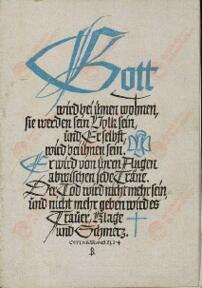 Gott
wird bei ihnen wohnen,
sie werden sein Volk sein,
und Er selbst,
wird bei ihnen sein.
Er wird von ihren Augen
abwischen jede Träne.
Der Tod wird nicht mehr sein
und nicht mehr geben wird es
Trauer, Klage
und Schmerz.